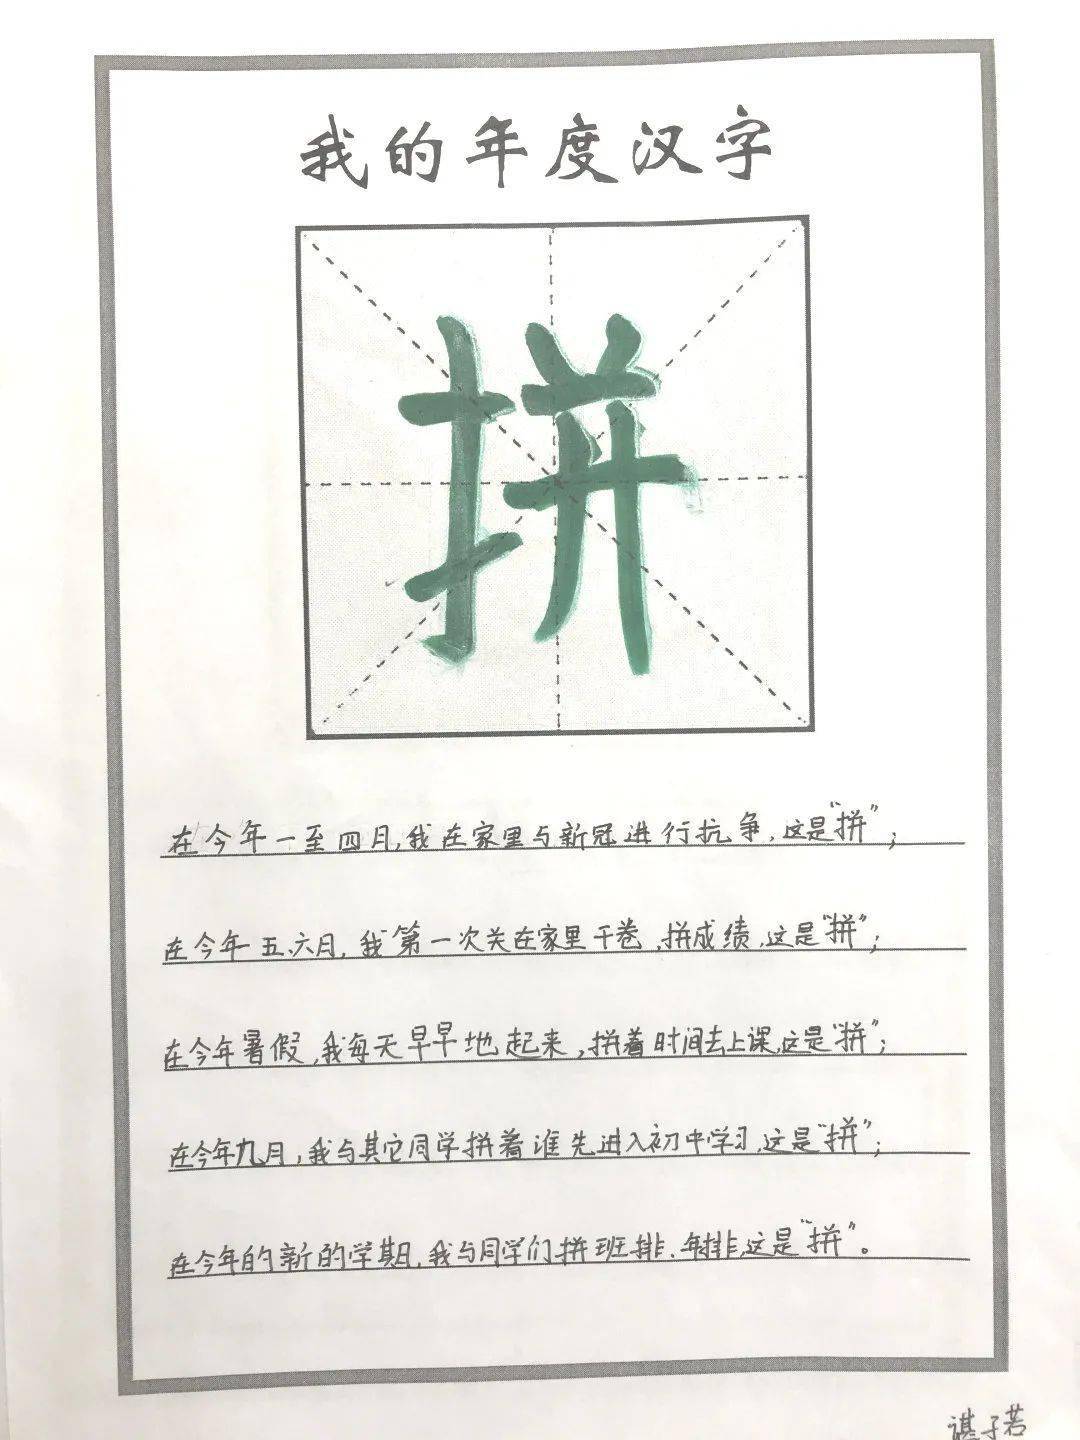 我的年度汉字
拼
在今年一至四月,我在家里与新冠进行抗争,这是“拼”;
在今年五、六月,我第一次关在家里干卷,拼成绩,这是“拼”;
在今年暑假,我每天早早地起来,拼着时间去上课,这是“拼”;
在今年九月,我与其它同学拼着谁先进入初中学习,这是“拼”;
在今年的新的学期,我与同学们拼班排、年排,这是“拼”。
谌子若